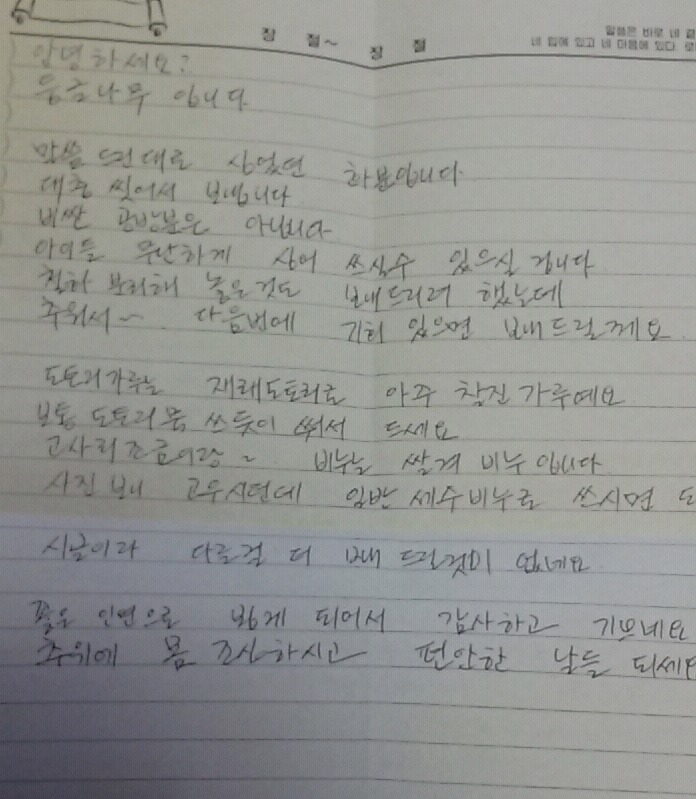 장 절~ 장 절
말씀은 바로 네 곁
네 입에 있고 네 마음에 있다. 로
안녕하세요?
응금나무 입니다
말씀 드린대로 심었던 화분입니다
대충 씻어서 보냅니다
비싼 공방분은 아닙니다
아이들 무난하게 심어 쓰실수 있으실 겁니다
철화 분리해 놓은것도 보내드리려 했는데
추워서~ 다음번에 기회 있으면 보내드릴께요
도토리가루는 재래도토리로 아주 찰진가루예요
보통 도토리묵 쓰듯이 쒀서 드세요
고사리조금이랑~ 비누는 쌀겨 비누입니다
사진 보니 고우시던데 일반 세수비누로 쓰시면 도
시골이라 다른걸 더 보내 드릴것이 없네요
좋은 인연으로 뵙게 되어서 감사하고 기쁘네요
추위에 몸 조심하시고 편안한 날들 되세요